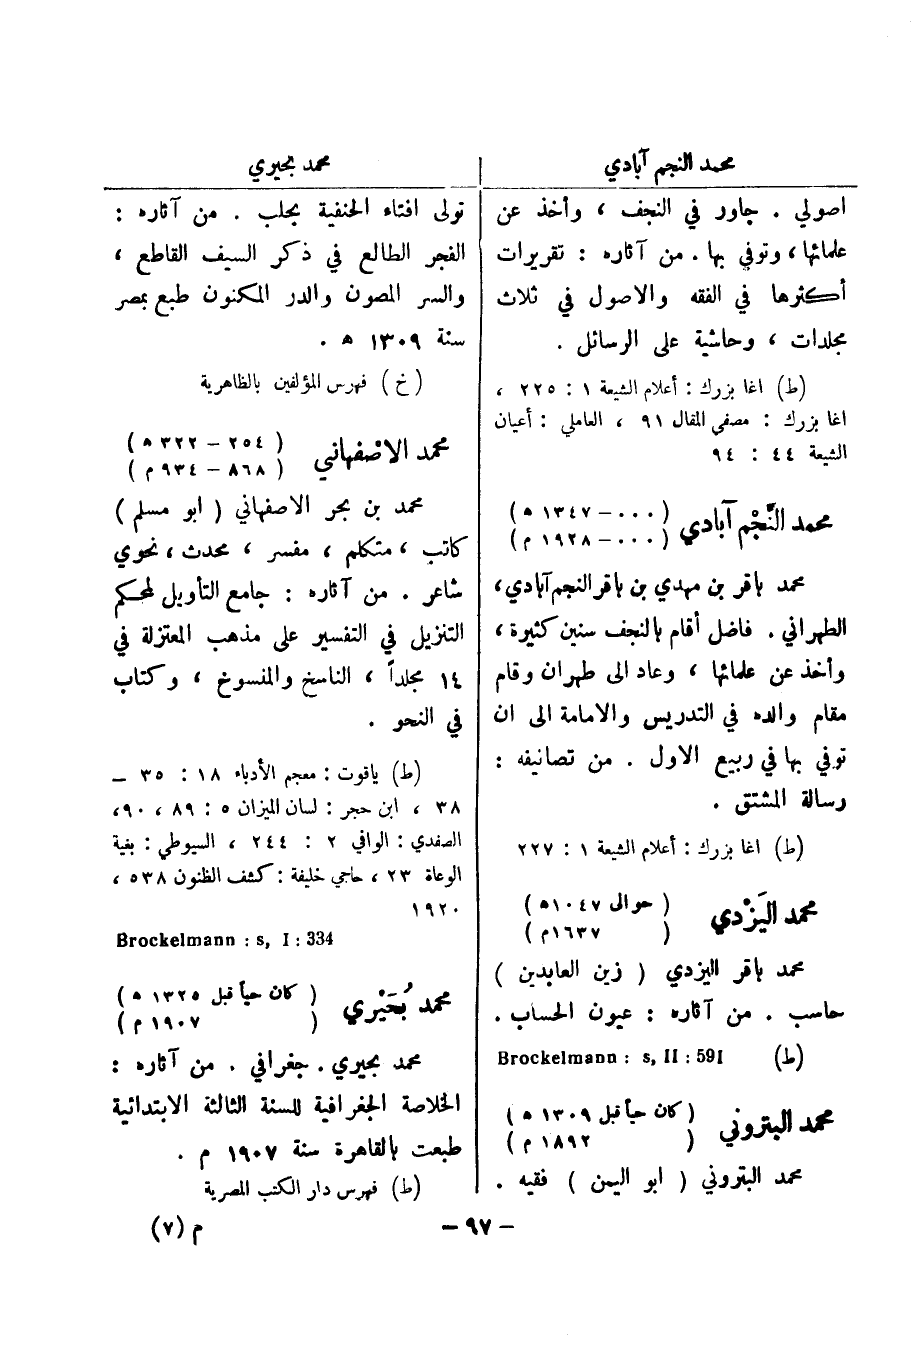 محمد النجم آبادي
محمد بحيري
اصولي . جاور في النجف ، وأخذ عن
علمائها ، وتوفي بها . من آثاره : تقريرات
أكثرها في الفقه والاصول في ثلاث
مجلدات ، وحاشية على الرسائل .
(ط) اغا بزرك : أعلام الشيعة ١ : ٢٢٥ ،
اغا بزرك : مصفي المقال ٩١ ، العاملي : أعيان
الشيعة ٤٤ : ٩٤
محمد النَّجْم آبادي ( ٠٠٠ – ١٣٤٧ ه )
( ٠٠٠ – ١٩٢٨ م )
محمد باقر بن مهدي بن باقر النجم آبادي ،
الطهراني . فاضل أقام بالنجف سنين كثيرة ،
وأخذ عن علمائها ، وعاد الى طهران وقام
مقام والده في التدريس والامامة الى ان
توفي بها في ربيع الاول . من تصانيفه :
رسالة المشتق .
(ط) اغا بزرك : أعلام الشيعة ١ : ٢٢٧
محمد اليَزْدي ( حوالى ١٠٤٧ه )
( ١٦٣٧م )
محمد باقر اليزدي ( زين العابدين )
حاسب . من آثاره : عيون الحساب .
(ط) Brockelmann : s, II : 591
محمد البتروني ( كان حياً قبل ١٣٠٩ ه )
( ١٨٩٢ م )
محمد البتروني ( ابو اليمن ) فقيه .
تولى افتاء الحنفية بحلب . من آثاره :
الفجر الطالع في ذكر السيف القاطع ،
والسر المصون والدر المكنون طبع بمصر
سنة ١٣٠٩ ه .
(خ) فهرس المؤلفين بالظاهرية
محمد الاصْفهاني ( ٢٥٤ – ٣٢٢ ه )
( ٨٦٨ – ٩٣٤ م )
محمد بن بحر الاصفهاني ( ابو مسلم )
كاتب ، متكلم ، مفسر ، محدث ، نحوي
شاعر . من آثاره : جامع التأويل لمحكم
التنزيل في التفسير على مذهب المعتزلة في
١٤ مجلداً ، الناسخ والمنسوخ ، وكتاب
في النحو .
(ط) ياقوت : معجم الأدباء ١٨ : ٣٥ –
٣٨ ، ابن حجر : لسان الميزان ٥ : ٨٩ ، ٩٠،
الصفدي : الوافي ٢ : ٢٤٤ ، السيوطي : بغية
الوعاة ٢٣ ، حاجي خليفة : كشف الظنون ٥٣٨ ،
١٩٢٠
Brockelmann : s, I : 334
محمد بُحَيْري ( كان حياً قبل ١٣٢٥ ه )
( ١٩٠٧ م )
محمد بحيري . جغرافي . من آثاره :
الخلاصة الجغرافية للسنة الثالثة الابتدائية
طبعت بالقاهرة سنة ١٩٠٧ م .
(ط) فهرس دار الكتب المصرية
– ٩٧ –
م (٧)